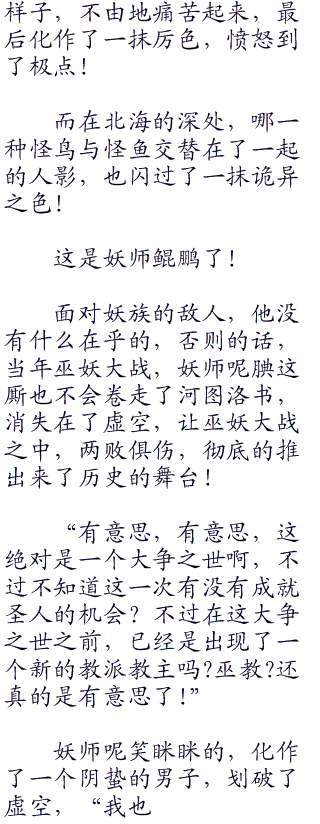 样子，不由地痛苦起来，最
后化作了一抹厉色，愤怒到
了极点！
而在北海的深处，哪一
种怪鸟与怪鱼交替在了一起
的人影，也闪过了一抹诡异
之色！
这是妖师鲲鹏了！
面对妖族的敌人，他没
有什么在乎的，否则的话，
当年巫妖大战，妖师呢腆这
厮也不会卷走了河图洛书，
消失在了虚空，让巫妖大战
之中，两败俱伤，彻底的推
出来了历史的舞台！
“有意思，有意思，这
绝对是一个大争之世啊，不
过不知道这一次有没有成就
圣人的机会？不过在这大争
之世之前，已经是出现了一
个新的教派教主吗?巫教?还
真的是有意思了！”
妖师呢笑眯眯的，化作
了一个阴蛰的男子，划破了
虚空，“我也